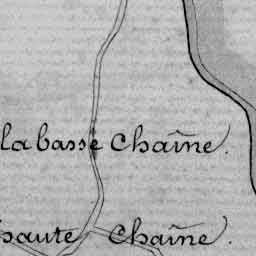 la basse Chaîne.
haute Chaîne.